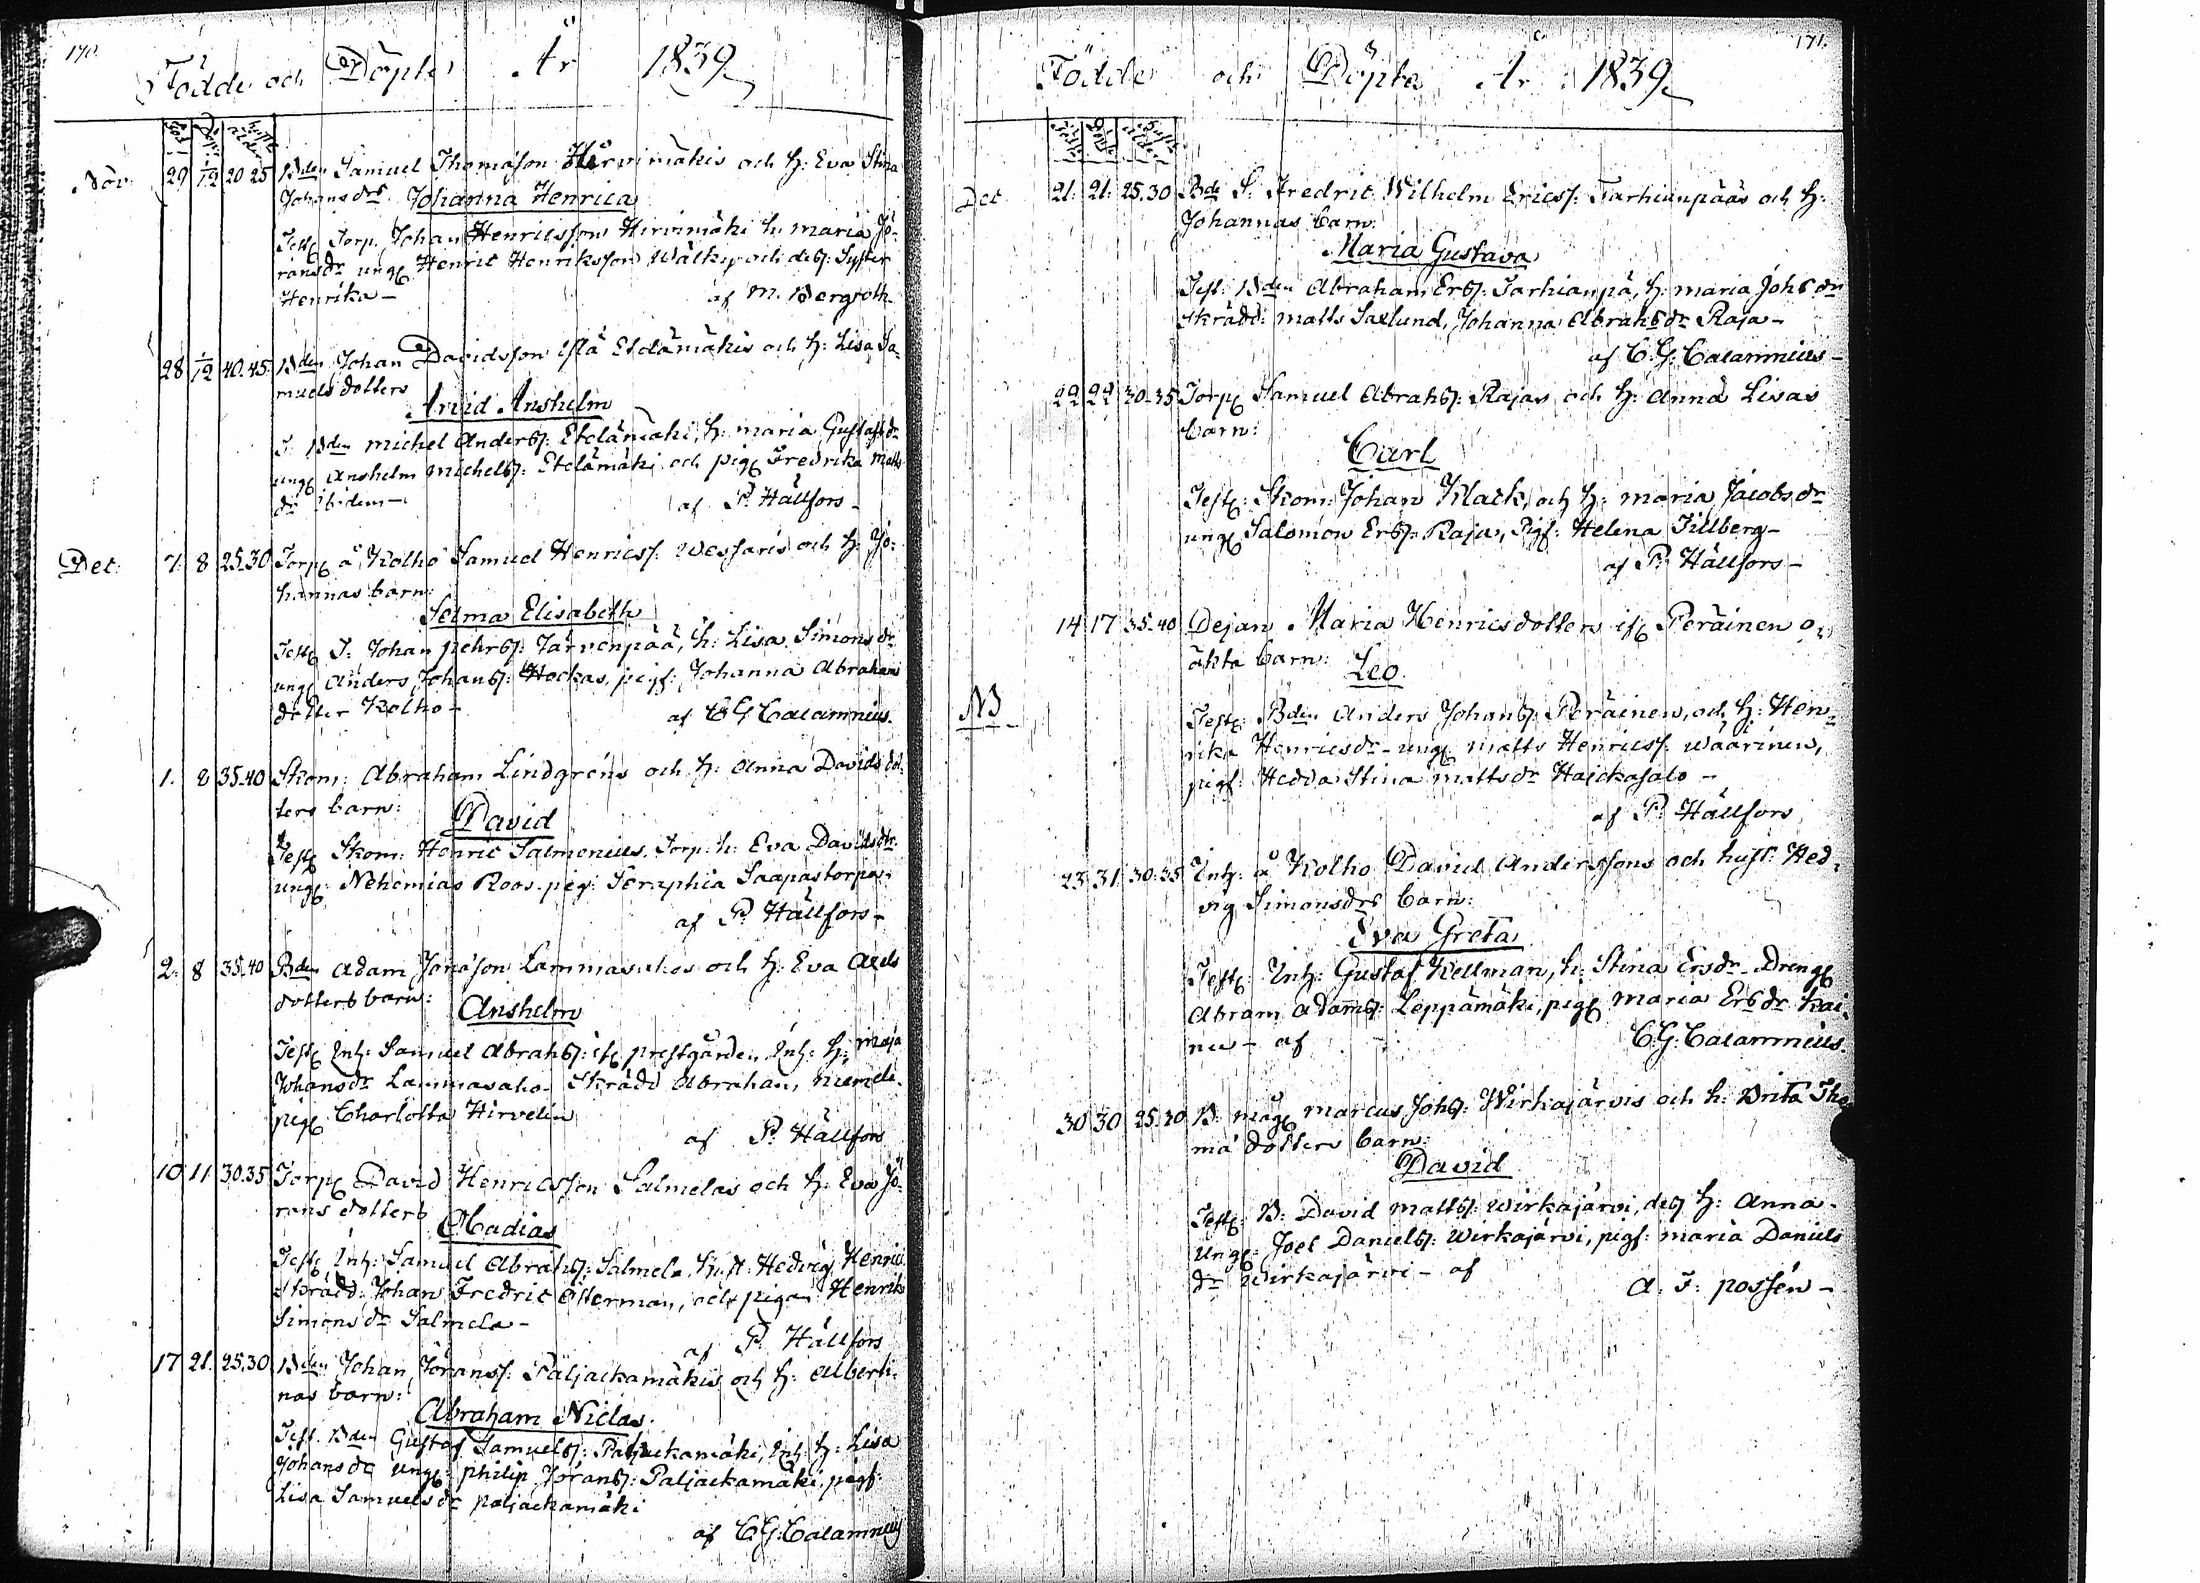 170.
Födde och Döpte År 1839
Nov: 29 1/12 20 25 Bden Samuel Thomasson Hirvimäkis och h: Eva Stina
Johansdrs Johanna Henrica
Test Torp. Johan Henricsson Hirvimäki h. Maria Jö-
ransdr ung Henric Henriksson Wälky och des Syster
Henrika - af M. Bergroth
28 1/12 40.45 Bden Johan Davidsson Etelämäkis och h: Lisa Sa-
muels dotters
Arvid Anshelm
T. Bden Michel Anders: Etelämäki, h: Maria Gustafsdr
ung Anshelm Michels: Etelämäki och pig Fredrika Matts
dr ibidem - af P. Hällfors -
Dec: 7. 8 25.30 Torp å Kolho Samuel Henricss: Wessaris och h: Jo-
hannas barn:
Selma Elisabeth
Test T: Johan Pehrs: Järvenpää, h: Lisa Simonsdr
ung Anders Johans: Hockas, pigf: Johanna Abrahams
dotter Kolho - af C G Calamnius.
1. 8 35.40 Skom: Abraham Lindgréns och h: Anna Davids dot-
ters barn:
David
Test Skom: Henric Salmenius. Torp. h: Eva Davidsdtr
ung: Nehemias Roos. pig: Seraphia Saapastorpa.
af P. Hällfors -
2. 8 35.40 Bden Adam Jonasson Lammasahos och h: Eva Axels
dotters barn:
Anshelm
Test Inh: Samuel Abrahs: if prestgården, Inh: h: Maja
Johansdr Lammasaho - Skrädd Abraham,
pig Charlotta Hirvelin
af P. Hällfors
10 11 30.35 Torp David Henricsson Salmelas och h: Eva Jö-
rans dotters
Obadias
Test Inh: Samuel Abrahs: Salmela, hust: Hedvig Henric
Skrädd: Johan Fredric Österman, och pigan Henrik
Simonsdr Salmela -
af P. Hällfors
17 21. 25.30 Bden Johan Jöranss: Päljackamäkis och h: Alberti-
nas barn:
Abraham Niclas.
Test. Bden Gustaf Samuels: Paljackamäki, Inh: h: Lisa
Johansdr ung: Philip Jörans: Paljackamäki, pigf:
Lisa Samuelsdr Paljackamäki
af C G: Calamnius
171.
Födde och Döpte År 1839
Dec 21. 21. 25.30 Bde S. Fredric Wilhelm Ericss: Tarhianpääs och h:
Johannas barn:
Maria Gustava
Test: Bden Abraham Ers: Tarhianpä, h: Maria Johsdr
Skrädd: Matts Saxlund, Johanna Abrahsdr Raja -
af C: G: Calamnius -
22 22 30-35 Torp Samuel Abrahs: Rajas och h: Anna Lisas
barn:
Carl
Test: Skom: Johan Klack, och h: Maria Jacobsdr
ung Salomon Ers: Raja, Pigf: Helena Tillberg -
af P. Hällfors -
14 17 35-40 Dejan Maria Henricsdotters if Peräinen o-
äkta barn:
Leo.
NB
Test: Bden Anders Johans: Peräinen, och h: Hen-
rika Henricsdr - ung Matts Henricss: Wäärinen,
pigf: Hedda Stina Mattsdr Haickasalo -
af P. Hällfors
23 31. 30.35 Inh: å Kolho David Anderssons och hust: Hed-
vig Simonsdrs barn:
Eva Greta
Test: Inh: Gustaf Kellman, h: Stina Ersdr - Dreng
Abram Adams: Leppämäki, pig Maria Ersdr Kai-
nu - af C: G: Calamnius.
30 30 25.30 B: måg Marcus Johs: Wirkajärvis och h: Brita Tho-
mä dotters barn:
David
Test: B: David Matts: Wirkajärvi, des h: Anna -
Ung: Joel Daniels: Wirkajärvi, pigf: Maria Daniels
dr Wirkajärvi - af A. F: Possén -